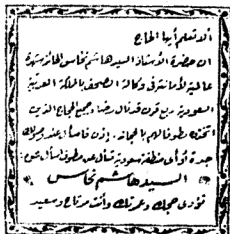 ألا تعلم أيها الحاج
ان حضرة الأستاذ السيد هاشم نحاس الحائز شهرة
عالمية لأمانته في وكالة الصحف بالمملكة العربية
السعودية ربع قرن قد نال رضاء جميع الحجاج الذين
اتخذوه مطوفا لهم بالحجاز. إذن فاسأل عند وصولك
جدة أو أي منطقة سعودية تسأل عن مطوفك اسأل عن:
السيد هاشم نحاس
تؤدى حجك وعمرتك وأنت مرتاح وسعيد